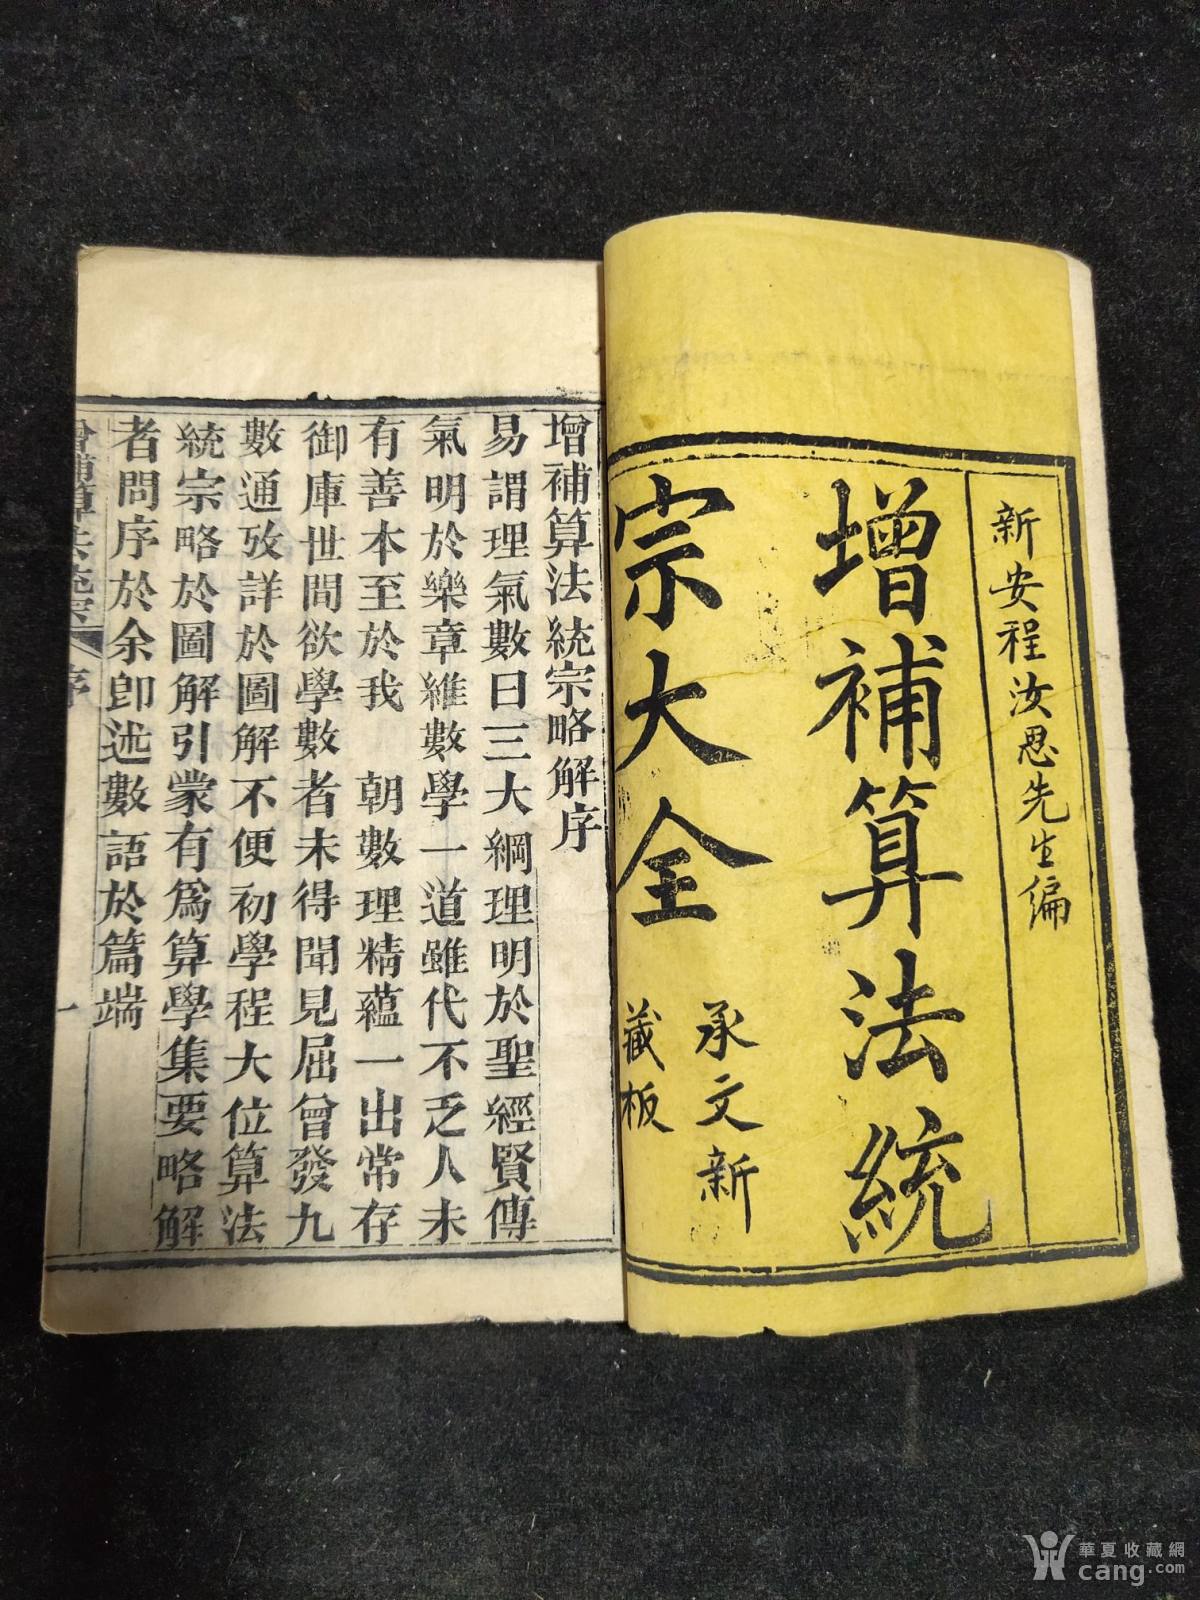 新安程汝思先生編
增補算法統
宗大全
承文新
藏板
增補算法統宗略解序
易謂理氣數曰三大綱理明於聖經賢傳
氣明於樂章維數學一道雖代不乏人未
有善本至於我　朝數理精蘊一出常存
御庫世間欲學數者未得聞見屈曾發九
數通攷詳於圖解不便初學程大位算法
統宗略於圖解引蒙有爲算學集要略解
者問序於余卽述數語於篇端
增補算法統宗　序　一
華夏收藏網
cang.com